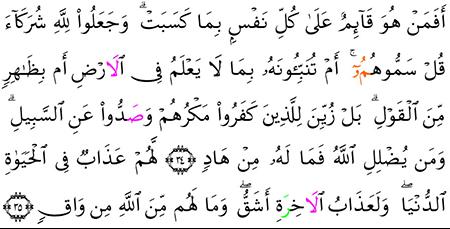 أَفَمَنْ هُوَ قَآئِمٌ عَلَىٰ كُلِّ نَفْسٍۭ بِمَا كَسَبَتْ ۗ وَجَعَلُوا۟ لِلَّهِ شُرَكَآءَ
قُلْ سَمُّوهُمُۥٓ ۚ أَمْ تُنَبِّـُٔونَهُۥ بِمَا لَا يَعْلَمُ فِى ٱلَارْضِ أَم بِظَـٰهِرٍ
مِّنَ ٱلْقَوْلِ ۗ بَلْ زُيِّنَ لِلَّذِينَ كَفَرُوا۟ مَكْرُهُمْ وَصَدُّوا۟ عَنِ ٱلسَّبِيلِ ۗ
وَمَن يُضْلِلِ ٱللَّهُ فَمَا لَهُۥ مِنْ هَادٍ ۝٣٤ لَّهُمْ عَذَابٌ فِى ٱلْحَيَوٰةِ
ٱلدُّنْيَا ۖ وَلَعَذَابُ ٱلَاخِرَةِ أَشَقُّ ۖ وَمَا لَهُم مِّنَ ٱللَّهِ مِن وَاقٍ ۝٣٥